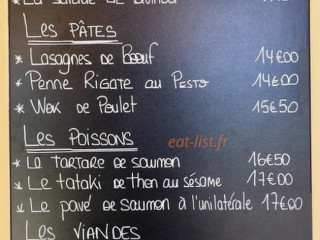 La salade de
Les PÂTES
* Lasagnes de Bœuf 14€00
* Penne Rigate au Pesto 14€00
* Wok de Poulet 15€50
Les Poissons
eat-list.fr
* Le tartare de saumon 16€50
* Le tataki de thon au sésame 17€00
* Le pavé de saumon à l'unilatérale 17€00
Les VIANDES